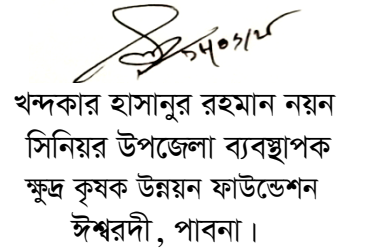 খন্দকার হাসানুর রহমান নয়ন
সিনিয়র উপজেলা ব্যবস্থাপক
ক্ষুদ্র কৃষক উন্নয়ন ফাউন্ডেশন
ঈশ্বরদী, পাবনা।